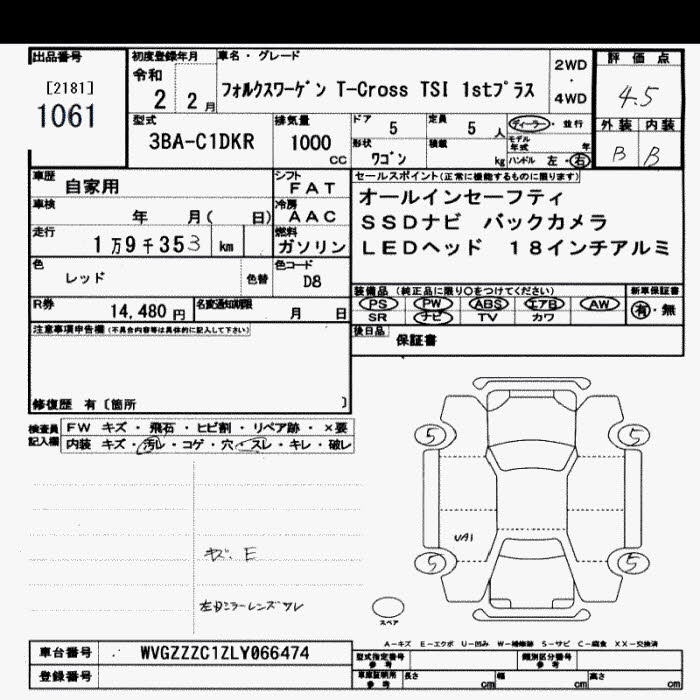 出品番号 初度登録年月 車名・グレード 2WD・4WD 評価点
[2181] 令和
1061 2 2月 フォルクスワーゲン T-Cross TSI 1stプラス 4.5
型式 排気量 ドア 定員 ディーラー・並行 外装 内装
3BA-C1DKR 1000cc 5 5人 モデル年式 年 B B
形状 積載
ワゴン kg ハンドル 左・右
車歴 自家用 シフト FAT セールスポイント(正常に機能するものに限ります)
車検 年 月( 日) 冷房 AAC オールインセーフティ
走行 1万9千353km 燃料 ガソリン SSDナビ バックカメラ
LEDヘッド 18インチアルミ
色 レッド 色替 色コード D8
装備品(純正品に限り○をつけてください) 新車保証書
R券 14,480円 名変通知期限 月 日 PS PW ABS エアB AW 有・無
SR ナビ TV カワ
注意事項申告欄(不具合内容等は具体的に記入して下さい) 後日品 保証書
修復歴 有〔箇所 〕
検査員記入欄 FW キズ・飛石・ヒビ割・リペア跡・×要
内装 キズ・汚レ・コゲ・穴・スレ・キレ・破レ
5 5
UA1
キズ.E
5 5
左Dミラーレンズワレ
スペア
A-キズ E-エクボ U-凹み W-補修跡 S-サビ C-腐食 XX-交換済
車台番号 WVGZZZC1ZLY066474 型式指定番号 参考 類別区分番号 参考
登録番号 車庫証明用 参考 長さ cm 幅 cm 高さ cm